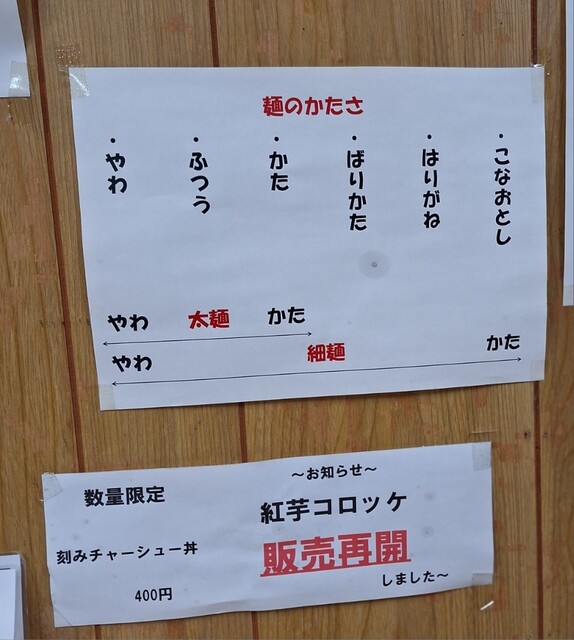 麺のかたさ
・こなおとし
・はりがね
・ばりかた
・かた
・ふつう
・やわ
やわ 太麺 かた
やわ 細麺 かた
～お知らせ～
紅芋コロッケ
販売再開
しました～
数量限定
刻みチャーシュー丼
400円